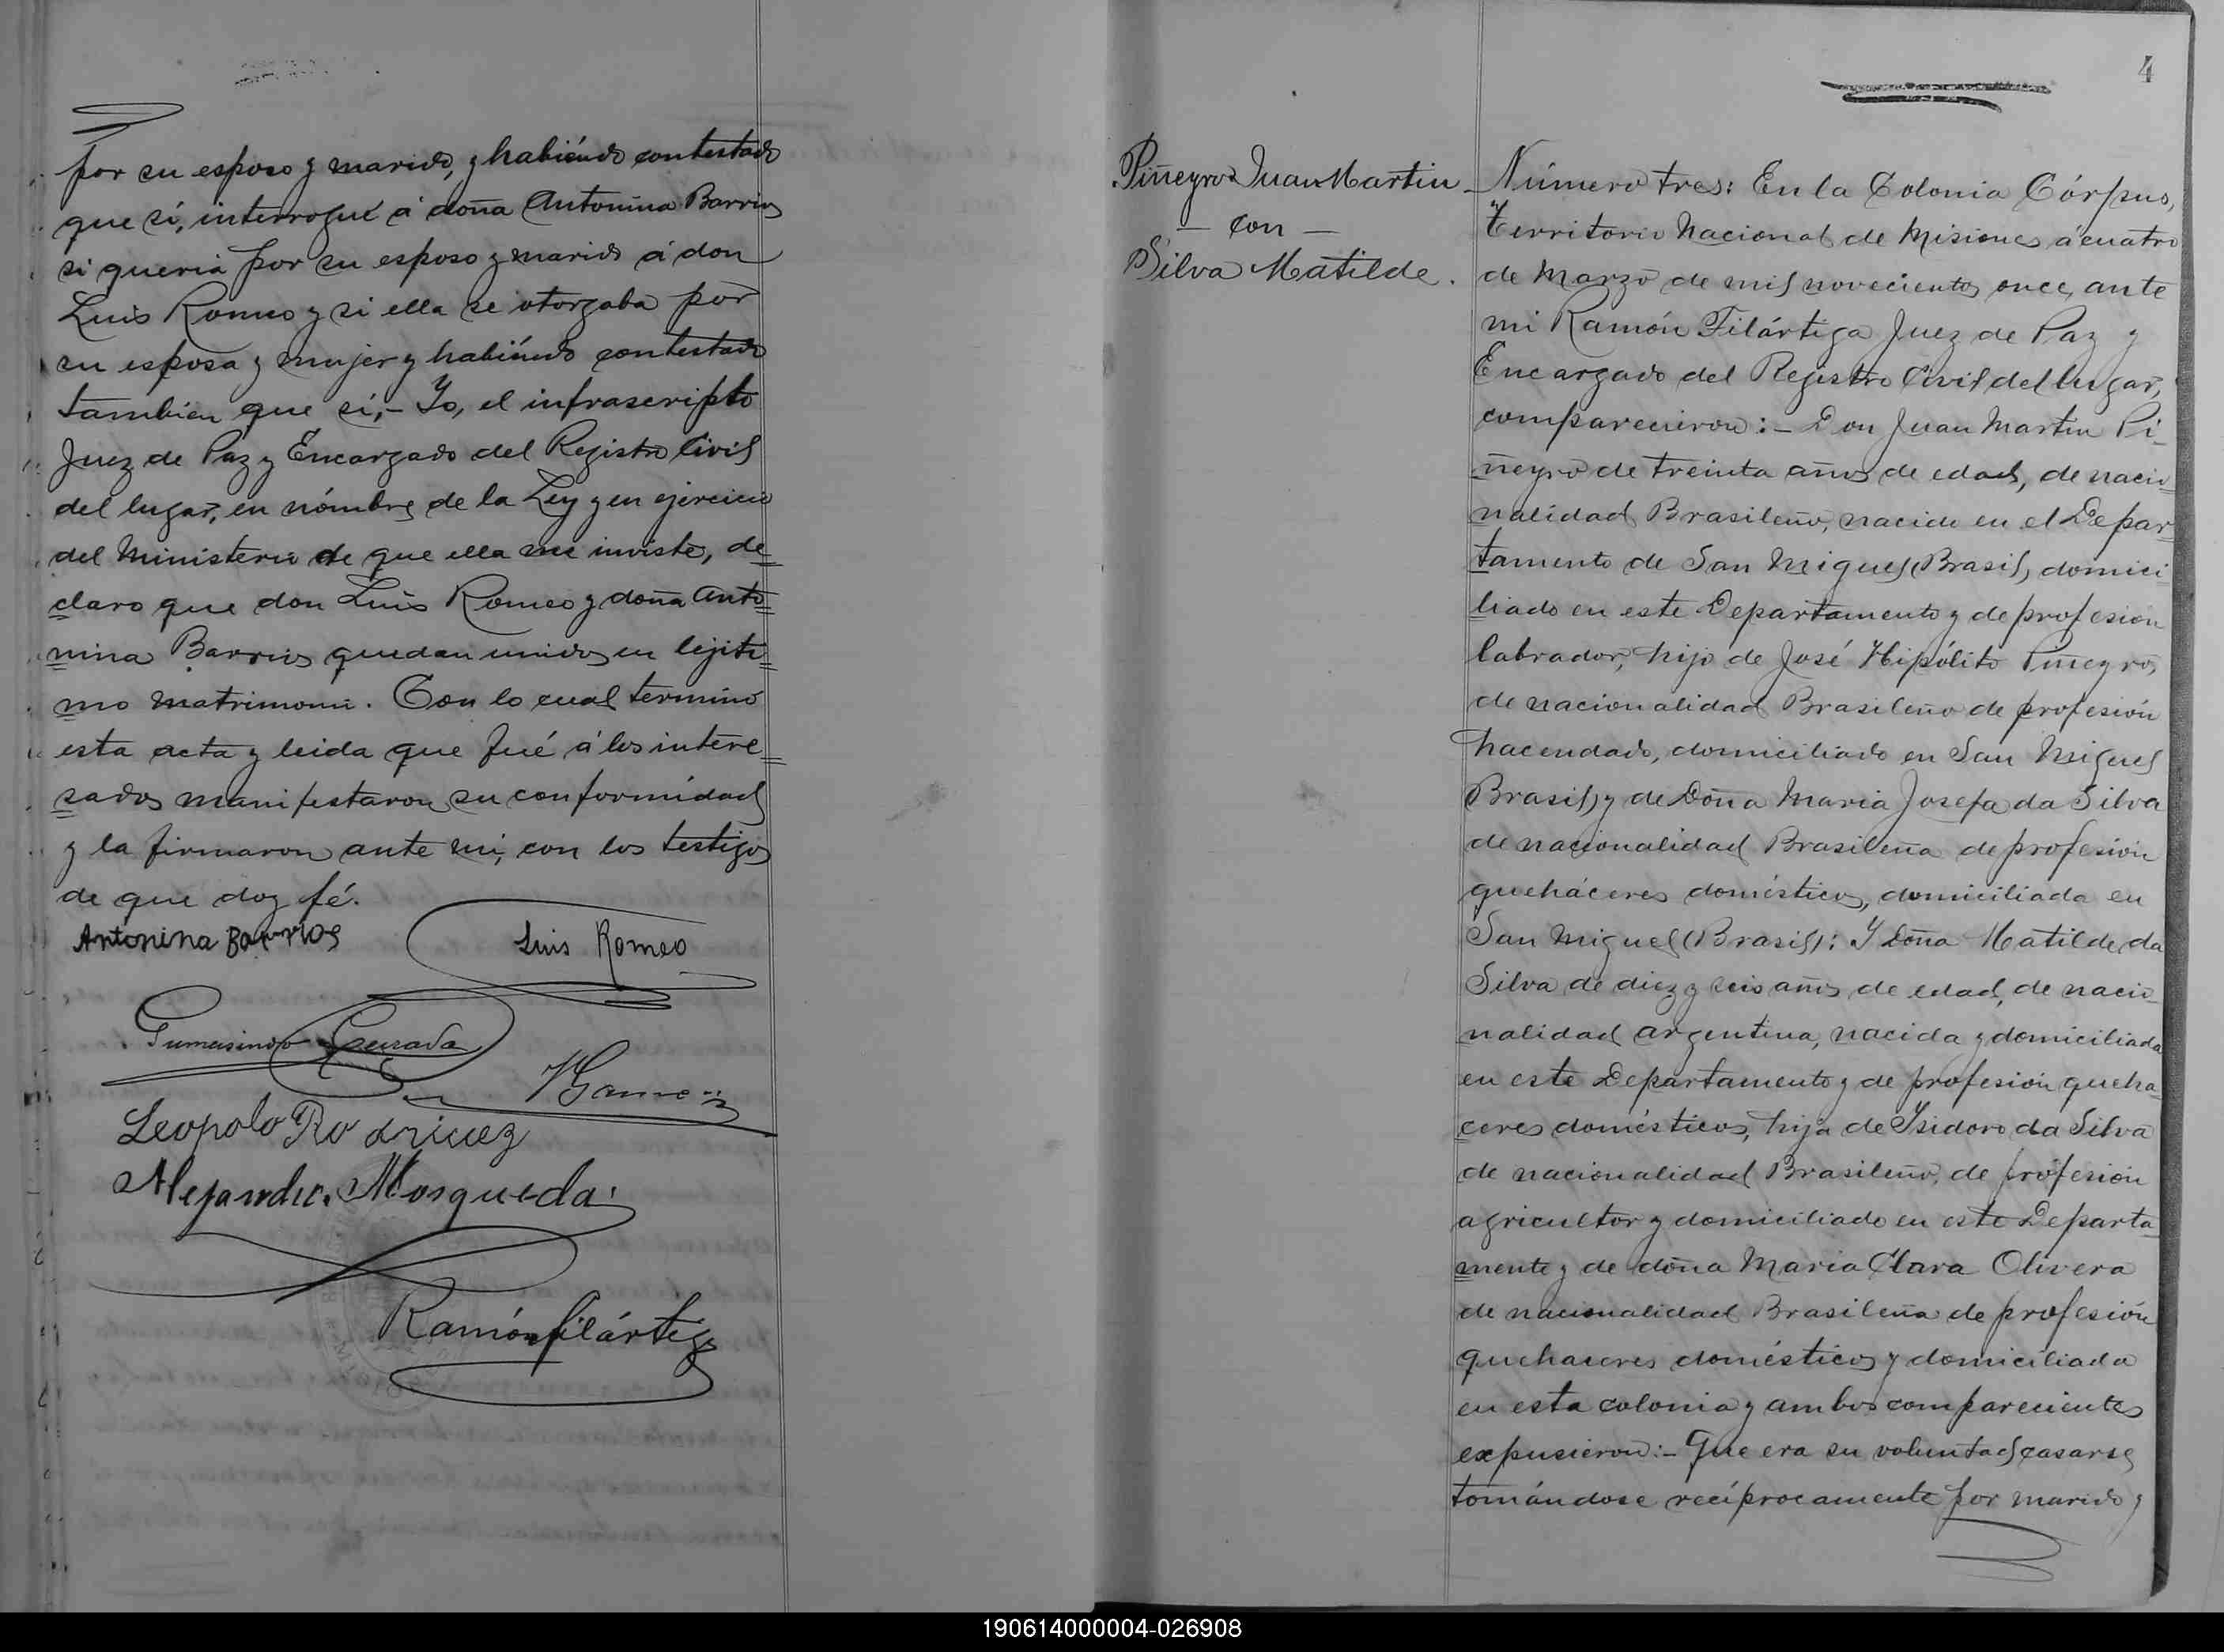 por su esposo y marido, y habiéndo contestado
que sí, interrogué á doña Antonina Barrios
si queria por su esposo y marido á don
Luis Romeo y si ella se otorgaba por
su esposa y mujer y habiéndo contestado
tambien que sí,- Yo, el infrascripto
Juez de Paz y Encargado del Registro Civil
del lugar, en nómbre de la Ley y en ejercicio
del Ministerio de que ella me inviste, de=
claro que don Luis Romeo y doña Anto=
nina Barrios quedan unidos en lejiti=
mo matrimonio. Con lo cual terminó
esta acta y leida que fué á los intere=
sados manifestaron su conformidad
y la firmaron ante mi, con los testigos
de que doy fé.
Antonina Barrios
Luis Romeo
Gumersindo
Leopoldo Rodriguez
Alejandro Mosqueda
Ramón Filártiga
4
Piñeyro Juan Martin
— con —
Silva Matilde.
Número tres: En la Colonia Córpus,
Territorio Nacional de Misiones á cuatro
de Marzo de mil novecientos once, ante
mi Ramón Filártiga Juez de Paz y
Encargado del Registro Civil del lugar,
comparecieron:- Don Juan Martin Pi-
ñeyro de treinta años de edad, de nacio-
nalidad Brasileño, nacido en el Depar-
tamento de San Miguel (Brasil) domici-
liado en este Departamento y de profesion
labrador, hijo de José Hipólito Piñeyro,
de nacionalidad Brasileño de profesión
hacendado, domiciliado en San Miguel
Brasil) y de Doña Maria Josefa da Silva
de nacionalidad Brasileña de profesión
queháceres domésticos, domiciliada en
San Miguel (Brasil): Y Doña Matilde da
Silva de diez y seis años de edad, de nacio-
nalidad argentina, nacida y domiciliada
en este Departamento y de profesión queha-
ceres domésticos, hija de Isidoro da Silva
de nacionalidad Brasileño, de profesión
agricultor y domiciliado en este Departa-
mento y de doña Maria Clara Olivera
de nacionalidad Brasileña de profesión
quehaceres domésticos y domiciliada
en esta colonia y ambos comparecientes
expusieron:- Que era su voluntad casarse
tomándose recíprocamente por marido y
190614000004-026908